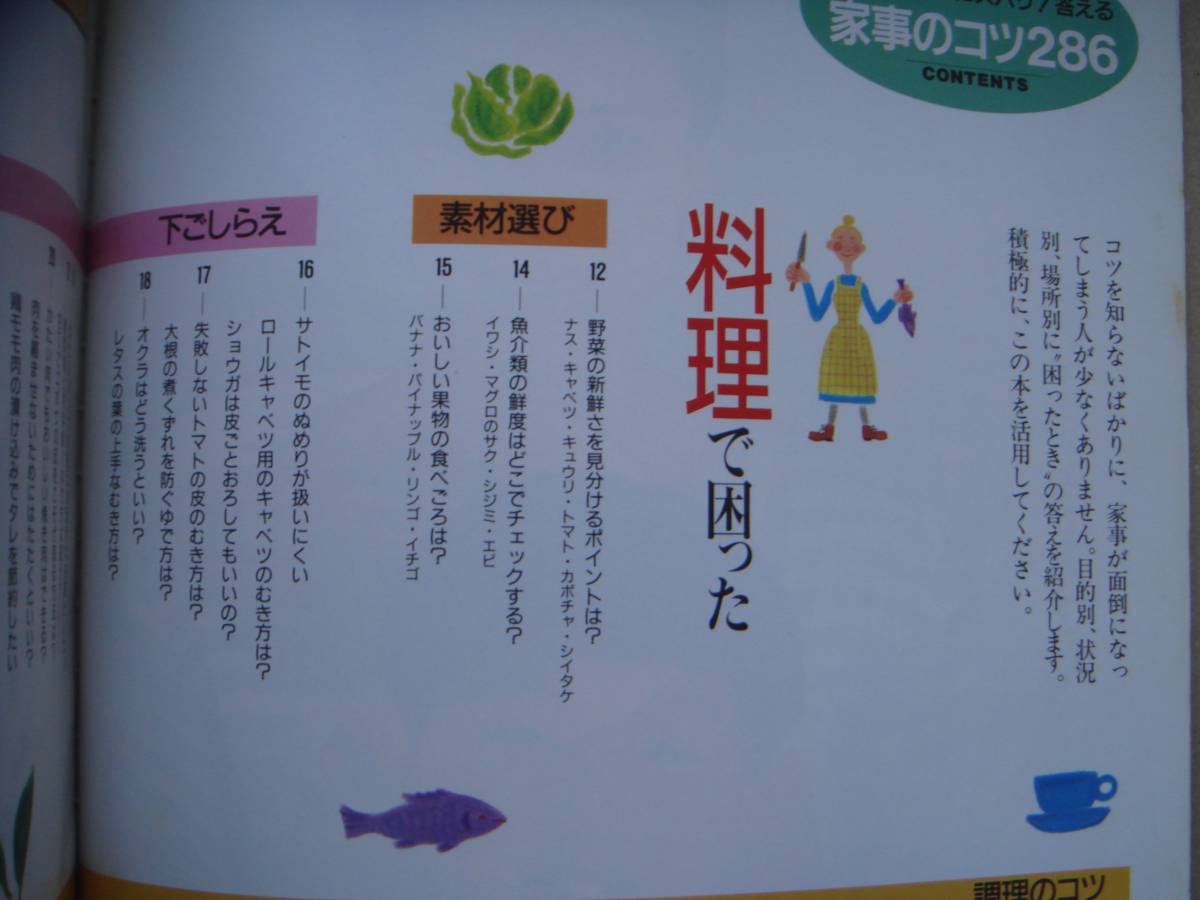 答える
家事のコツ286
CONTENTS
コツを知らないばかりに、家事が面倒になっ
てしまう人が少なくありません。目的別、状況
別、場所別に〝困ったとき〟の答えを紹介します。
積極的に、この本を活用してください。
料理で困った
素材選び
12 野菜の新鮮さを見分けるポイントは?
ナス・キャベツ・キュウリ・トマト・カボチャ・シイタケ
14 魚介類の鮮度はどこでチェックする?
イワシ・マグロのサク・シジミ・エビ
15 おいしい果物の食べごろは?
バナナ・パイナップル・リンゴ・イチゴ
下ごしらえ
16 サトイモのぬめりが扱いにくい
ロールキャベツ用のキャベツのむき方は?
ショウガは皮ごとおろしてもいいの?
17 失敗しないトマトの皮のむき方は?
大根の煮くずれを防ぐゆで方は?
18 オクラはどう洗うといい?
レタスの葉の上手なむき方は?
20
肉を縮ませないためにはたたくといい?
鶏モモ肉の漬け込みでタレを節約したい
調理のコツ